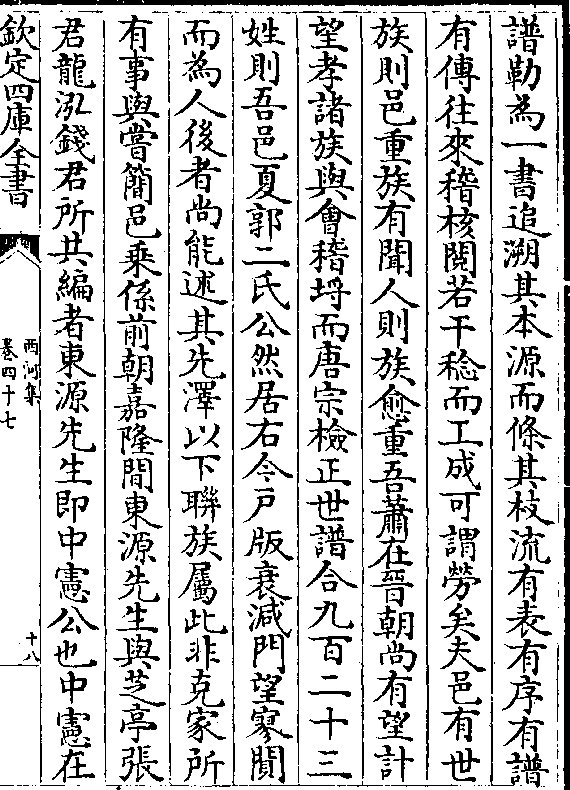 譜勒為一書追溯其本源而條其枝流有表有序有譜
有傳往來稽核閱若干稔而工成可謂勞矣夫邑有世
族則邑重族有聞人則族愈重吾蕭在晉朝尚有望計
望孝諸族與會稽埒而唐宗檢正世譜合九百二十三
姓則吾邑夏郭二氏公然居右今戸版衰減門望寥閴
而為人後者尚能述其先澤以下聯族屬此非克家所
有事與嘗簡邑乗係前朝嘉隆間東源先生與芝亭張
君龍泓錢君所共編者東源先生即中憲公也中憲在
欽定四庫全書
西河集
卷四十七
十八